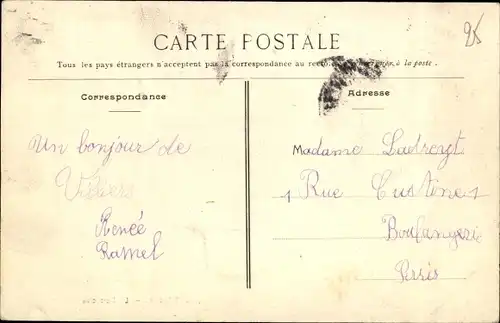 25
CARTE POSTALE
Tous les pays étrangers n'acceptent pas la correspondance au recto à la poste.
Correspondance
Adresse
Un bonjour de
Villiers
Renée
Ramel
Madame Ladroyt
1 Rue Custine 1
Boulangerie
Paris